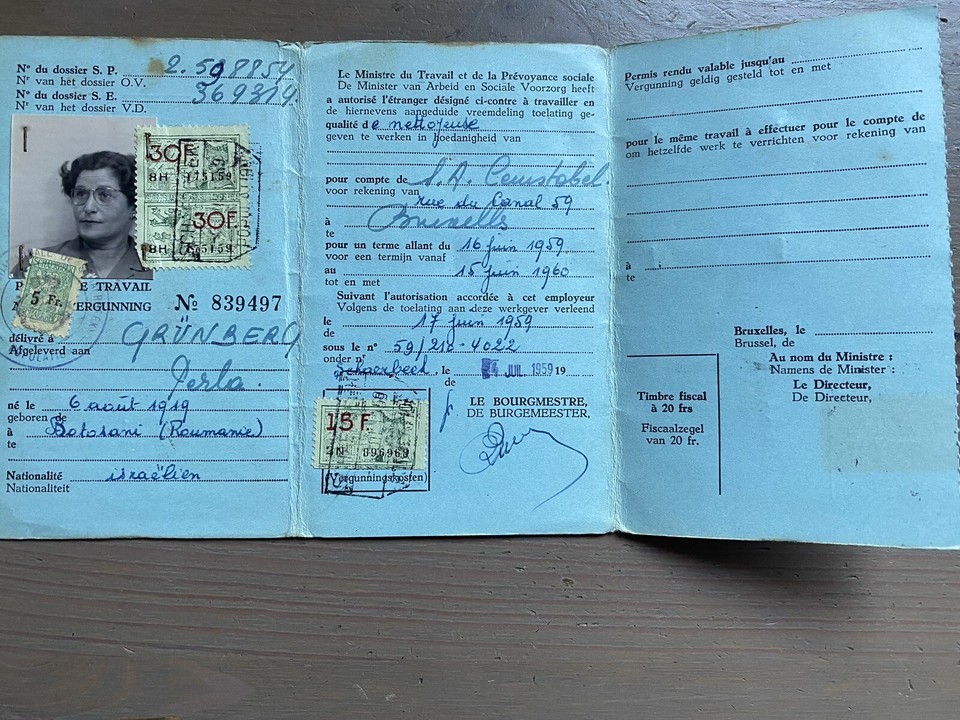 N° du dossier S. P. 2.598854
N° van het dossier O.V.
N° du dossier S. E. 369314
N° van het dossier V.D.
30F.
8H 175159
30F.
8H 175159
5 Fr.
E TRAVAIL
VERGUNNING N° 839497
délivré à GRÜNBERG
Afgeleverd aan
Perla.
né le 6 août 1919
geboren de
à Botosani (Roumanie)
te
Nationalité israëlien
Nationaliteit
Le Ministre du Travail et de la Prévoyance sociale
De Minister van Arbeid en Sociale Voorzorg heeft
a autorisé l'étranger désigné ci-contre à travailler en
de hiernevens aangeduide vreemdeling toelating ge-
qualité de nettoyeuse
geven te werken in hoedanigheid van
pour compte de S.A.
voor rekening van rue du Canal 59
à Bruxelles
te
pour un terme allant du 16 juin 1959
voor een termijn vanaf
au 15 juin 1960
tot en met
Suivant l'autorisation accordée à cet employeur
Volgens de toelating aan deze werkgever verleend
le 17 juin 1959
de
sous le n° 59/218-4022
onder n°
Schaerbeek, le JUIL 1959 19
de
15 F.
2N 896969
(Vergunningskosten)
LE BOURGMESTRE,
DE BURGEMEESTER,
Permis rendu valable jusqu'au
Vergunning geldig gesteld tot en met
pour le même travail à effectuer pour le compte de
om hetzelfde werk te verrichten voor rekening van
à
te
Bruxelles, le
Brussel, de
Au nom du Ministre :
Namens de Minister :
Le Directeur,
De Directeur,
Timbre fiscal
à 20 frs
Fiscaalzegel
van 20 fr.